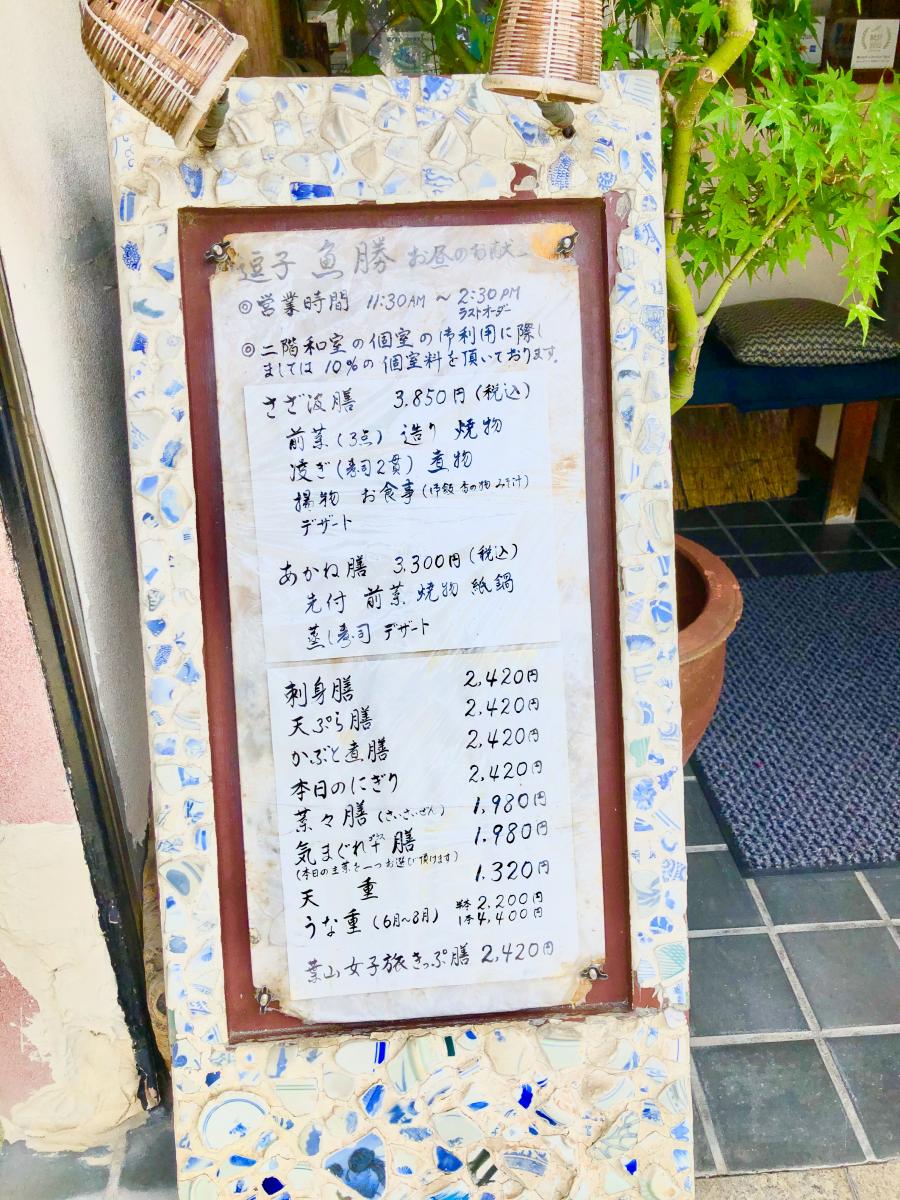 逗子 魚勝 お昼のお献立
◎営業時間 11:30AM ~ 2:30PM
ラストオーダー
◎二階和室の個室の御利用に際し
ましては10%の個室料を頂いております。
さざ波膳 3.850円(税込)
前菜(3点) 造り 焼物
凌ぎ(寿司2貫) 煮物
揚物 お食事(御飯 香の物 みそ汁)
デザート
あかね膳 3.300円(税込)
先付 前菜 焼物 紙鍋
蒸し寿司 デザート
刺身膳 2,420円
天ぷら膳 2,420円
かぶと煮膳 2,420円
本日のにぎり 2,420円
菜々膳(さいさいぜん) 1.980円
気まぐれ+膳 1.980円
(本日の主菜を一つお選び頂けます)
天重 1.320円
うな重(6月~8月) 半本 2,200円
1本 4,400円
葉山女子旅きっぷ膳 2,420円